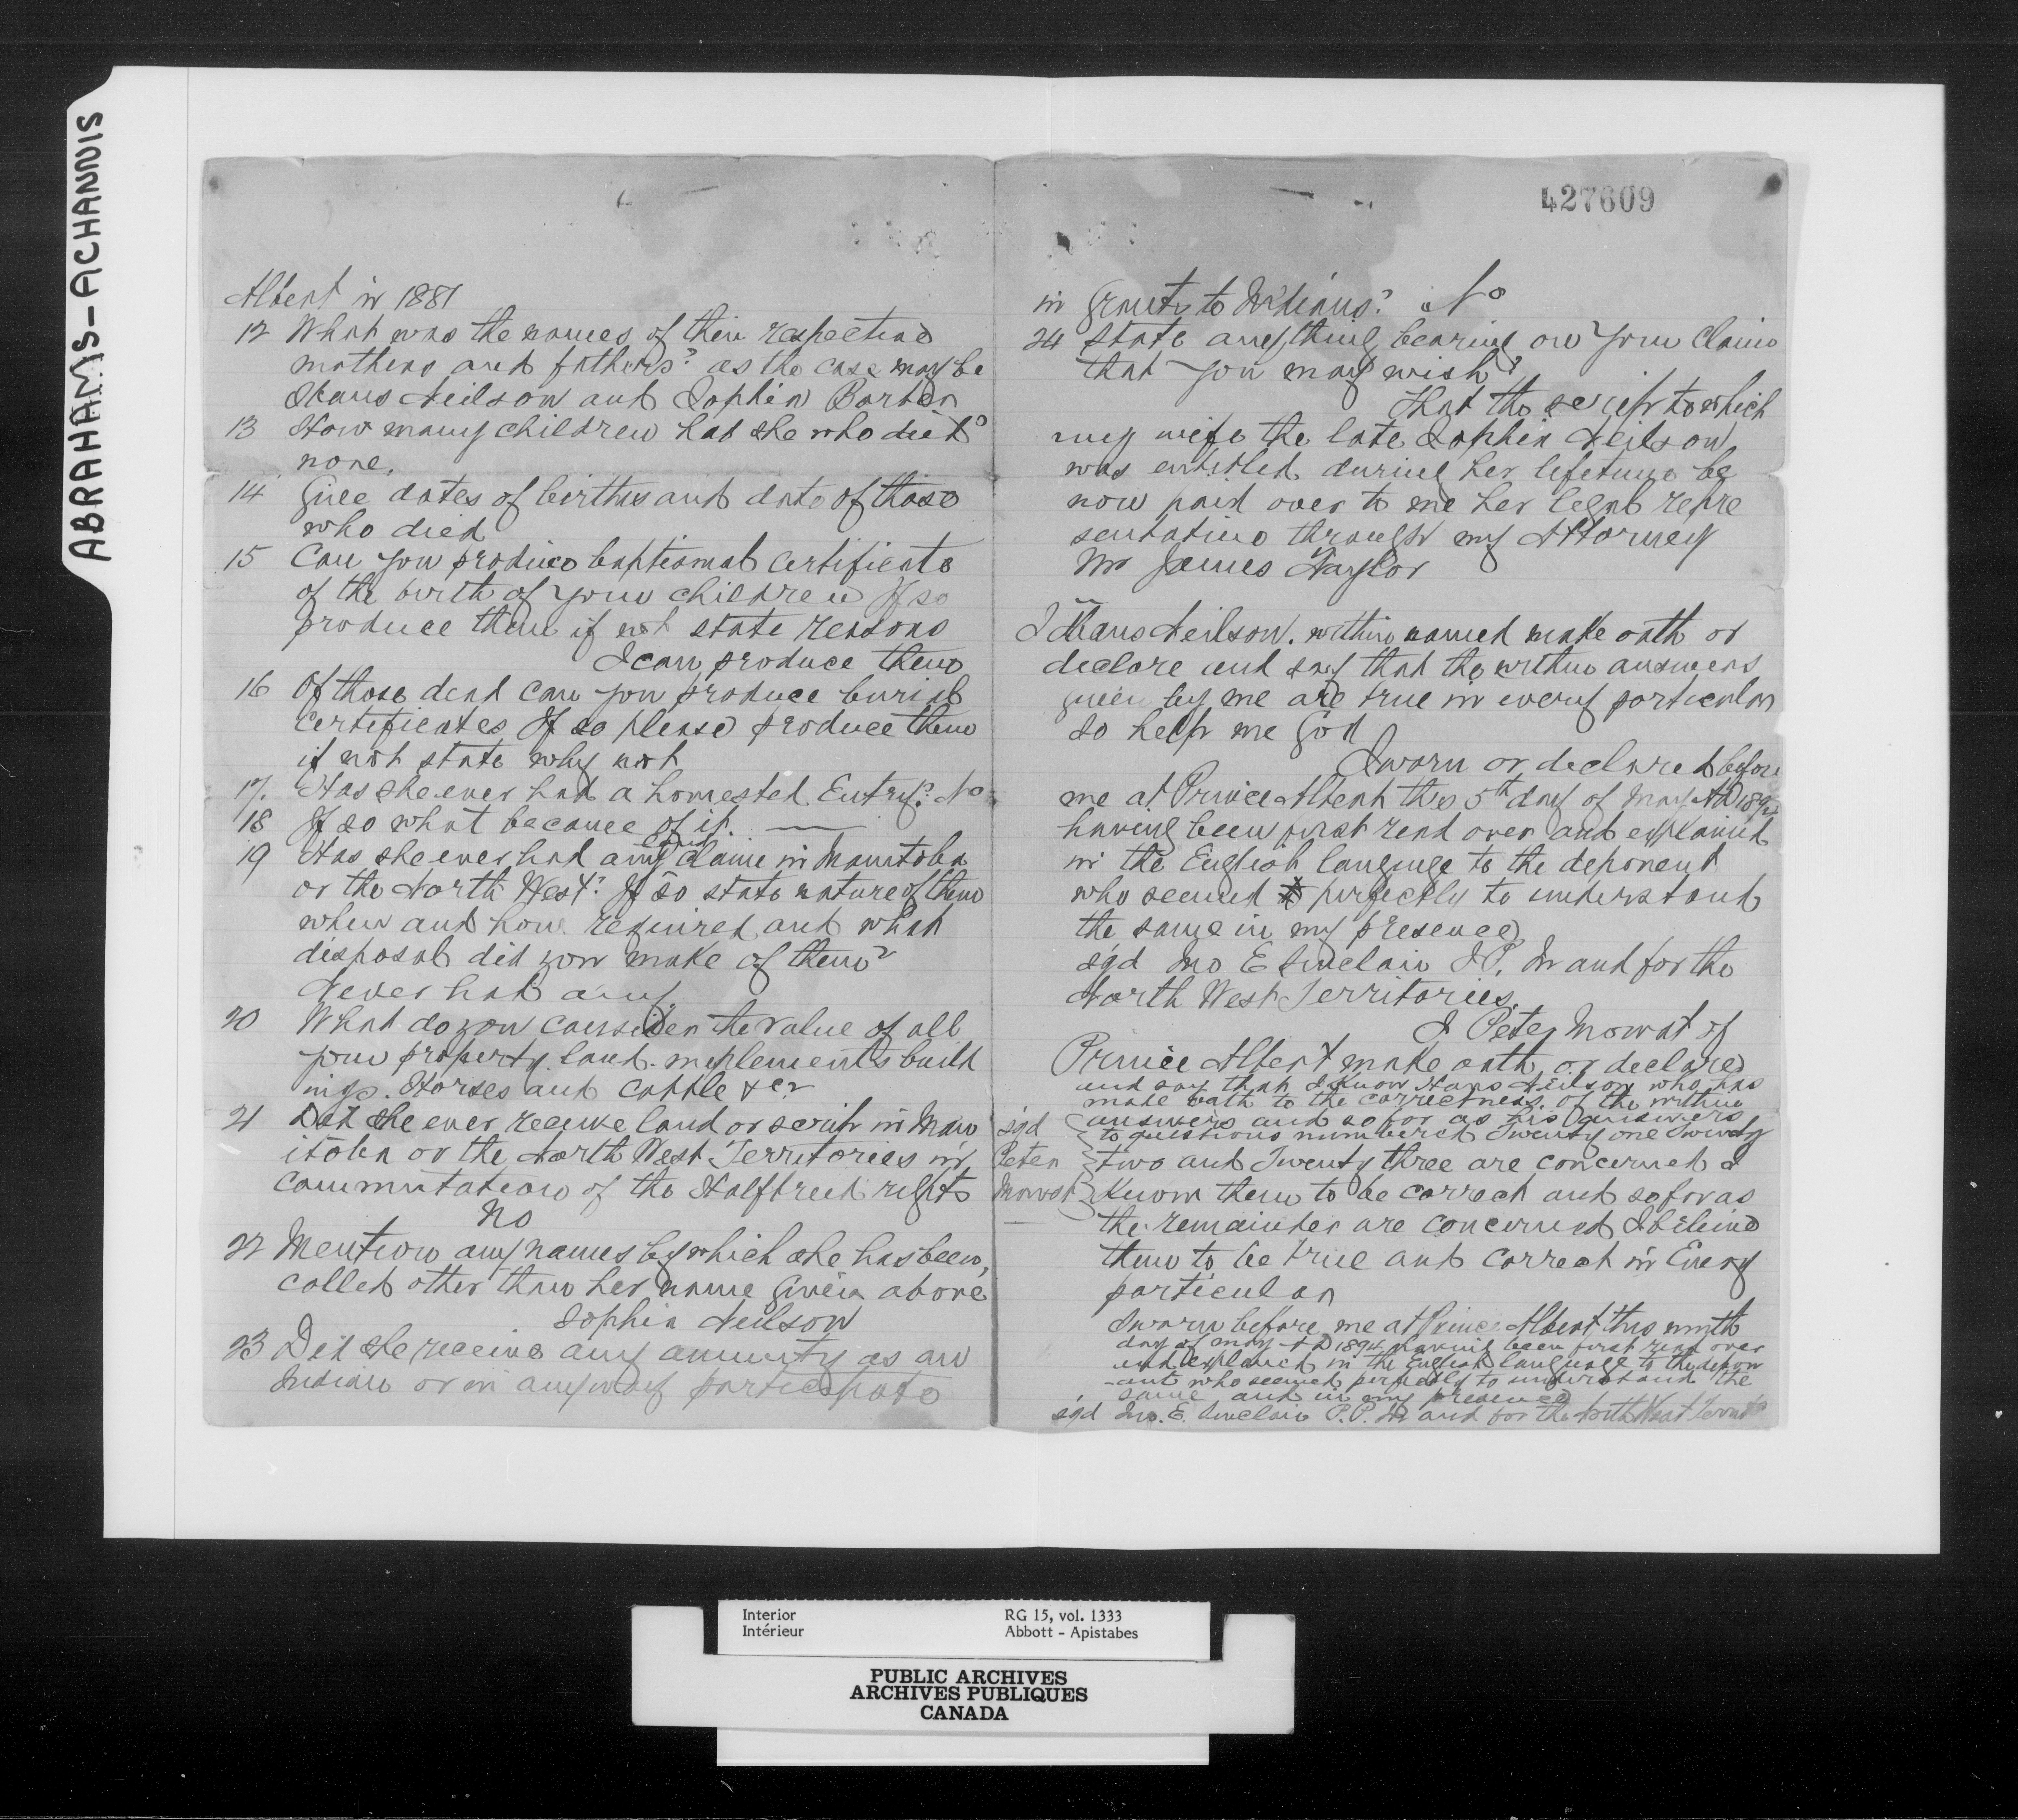 ABRAHAMS-ACHANNIS
Albert in 1881
12 What was the names of their respective
mothers and fathers? as the case may be
Hans Neilson and Sophia Barton
13 How many children had she who died?
none.
14 Give dates of births and date of those
who died
15 Can you produce baptismal certificate
of the birth of your children If so
produce them if not state reasons
I can produce them
16 Of those dead can you produce burial
certificates If so please produce them
if not state why not
17. Has she ever had a homested Entry? No
18 If so what became of it. —
19 Has she ever had any land claim in Manitoba
or the North West? If so state nature of them
when and how required and what
disposal did you make of them?
Never had any.
20 What do you consider the value of all
your property land implements build
ings. Horses and cattle &c?
21 Did she ever receive land or scrip in Man
itoba or the North West Territories in
Commutation of the Halfbreed rights
No
22 Mention any names by which she has been,
called other than her name given above
Sophia Neilson
23 Did she receive any annuity as an
Indian or in anyway participate
427609
in Grants to Indians? No
24 State anything bearing on your claim
that you may wish?
That the scrip to which
my wife the late Sophia Neilson
was entitled during her lifetime be
now paid over to me her legal repre
sentative through my Attorney
Mr James Taylor
I Hans Neilson. within named make oath or
declare and say that the within answers
given by me are true in every particular
so help me God
Sworn or declared before
me at Prince Albert this 5th day of May AD 1894
having been first read over and explained
in the English language to the deponent
who seemed perfectly to understand
the same in my presence
sgd Jno E Sinclair J.P. In and for the
North West Territories.
I Peter Mowat of
Prince Albert make oath or declare
and say that I know Hans Neilson who has
made oath to the correctness of the within
answers and so far as his answers
to questions numbered Twenty one Twenty
two and Twenty three are concerned I
know them to be correct and so far as
the remainder are concerned I believe
them to be true and correct in Every
particular
sgd
Peter
Mowat
Sworn before me at Prince Albert this ninth
day of May AD 1894 having been first read over
and explained in the English language to the depon
-ant who seemed perfectly to understand the
same and in my presence
sgd Jno. E. Sinclair J.P. In and for the North West
Interior RG 15, vol. 1333
Intérieur Abbott - Apistabes
PUBLIC ARCHIVES
ARCHIVES PUBLIQUES
CANADA